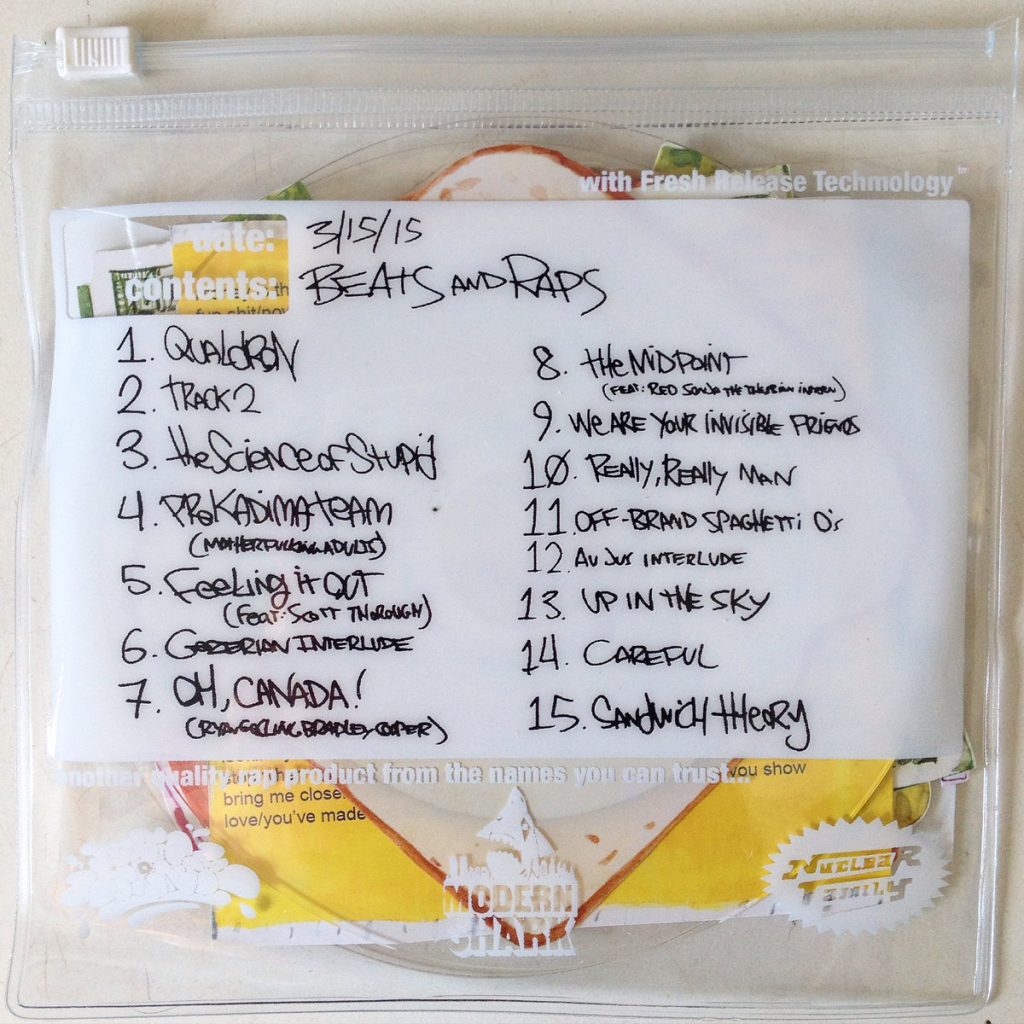 with Fresh Release Techmology
date: 3/15/15
contents: BEATS AND RAPS
1. QUALDRON
2. TRACK 2
3. the Science of Stupid
4. PROKADIMA TEAM
(MOTHERFUCKING ADULTS)
5. Feeling it OUT
(Feat: Scott Thorough)
6. GOZERIAN INTERLUDE
7. OH, CANADA!
(RYAN GOSLING BRADLEY COOPER)
8. the MIDPOINT
(FEAT: RED SONJA THE INTERN)
9. We ARE YOUR INVISIBLE FRIENDS
10. REALLY, REALLY MAN
11. OFF-BRAND SPAGHETTI O's
12. AU JUS INTERLUDE
13. UP IN THE SKY
14. CAREFUL
15. SANDWICH THEORY
another quality rap product from the names you can trust...
you show
bring me close
love/you've made
MODERN
SHARK
NUCLEAR
FAMILY